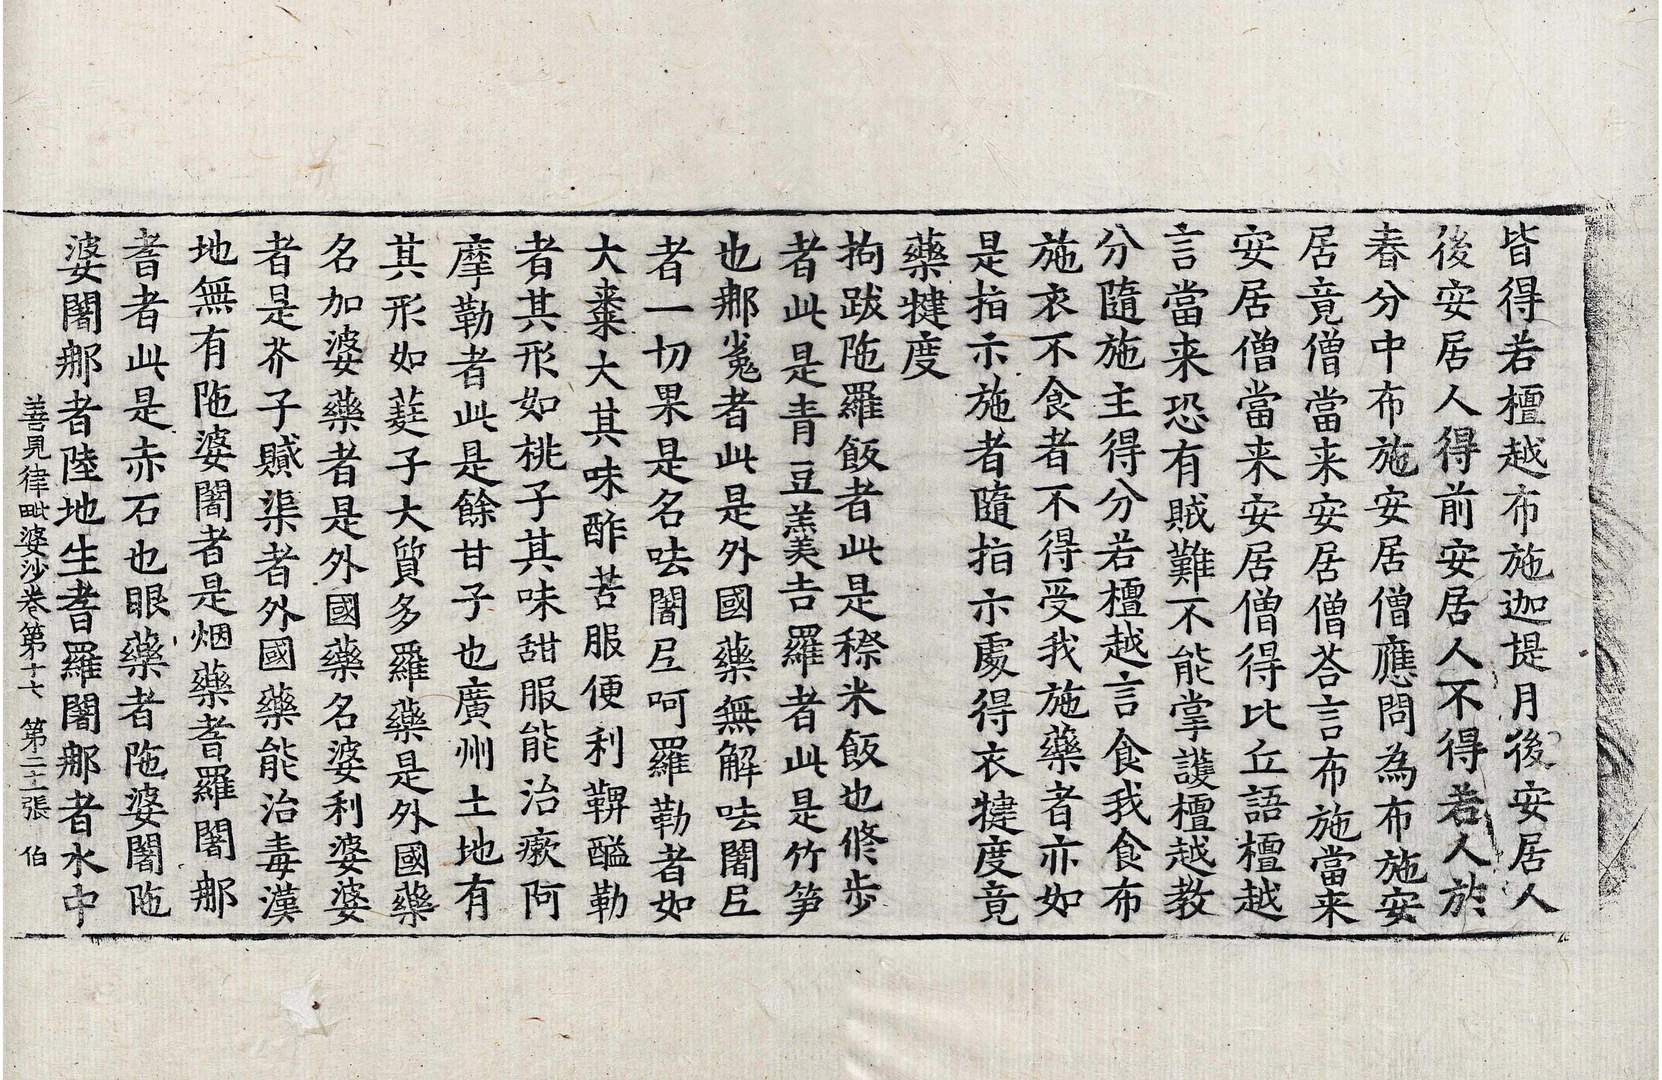 皆得若檀越布施迦提月後安居人
後安居人得前安居人不得若人於
春分中布施安居僧應問為布施安
居竟僧當来安居僧荅言布施當来
安居僧當来安居僧得比丘語檀越
言當来恐有賊難不能掌護檀越教
分隨施主得分若檀越言食我食布
施衣不食者不得受我施藥者亦如
是指示施者隨指示處得衣揵度竟
藥揵度
拘跋陁羅飯者此是穄米飯也修步
者此是青豆羹吉羅者此是竹笋
也那㝹者此是外國藥無解呿闍𡰱
者一切果是名呿闍𡰱呵羅勒者如
大棗大其味酢苦服便利鞞醯勒
者其形如桃子其味甜服能治瘶阿
摩勒者此是餘甘子也廣州土地有
其形如蕤子大質多羅藥是外國藥
名加婆藥者是外國藥名婆利婆婆
者是芥子贓渠者外國藥能治毒漢
地無有陁婆闍者是烟藥耆羅闍那
耆者此是赤石也眼藥者陁婆闍陁
婆闍那者陸地生耆羅闍那者水中
善見律毗婆沙卷第十七 第二十張 伯